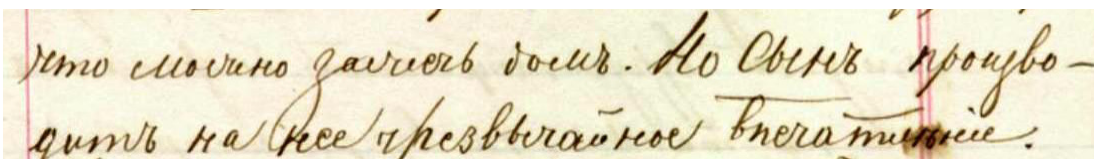 что можно зажечь домъ. Но Сынъ произво-
дитъ на нее чрезвычайное впечатлѣніе.